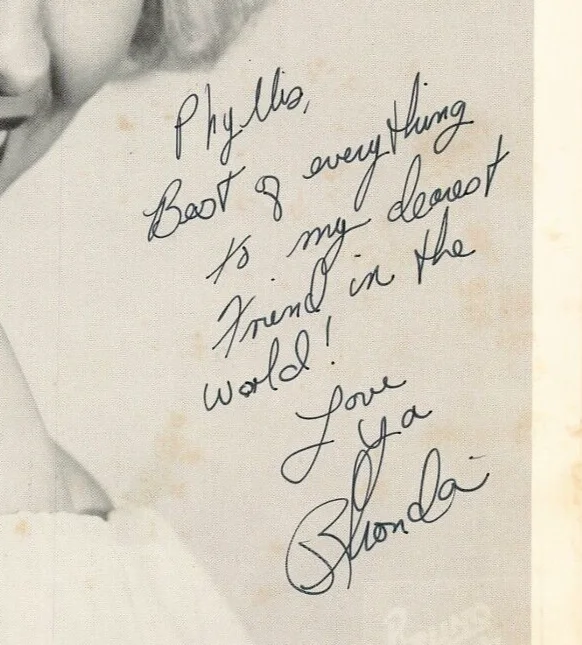 Phyllis,
Best of everything
to my dearest
Friend in the
world!
Love
Ya
Rhonda